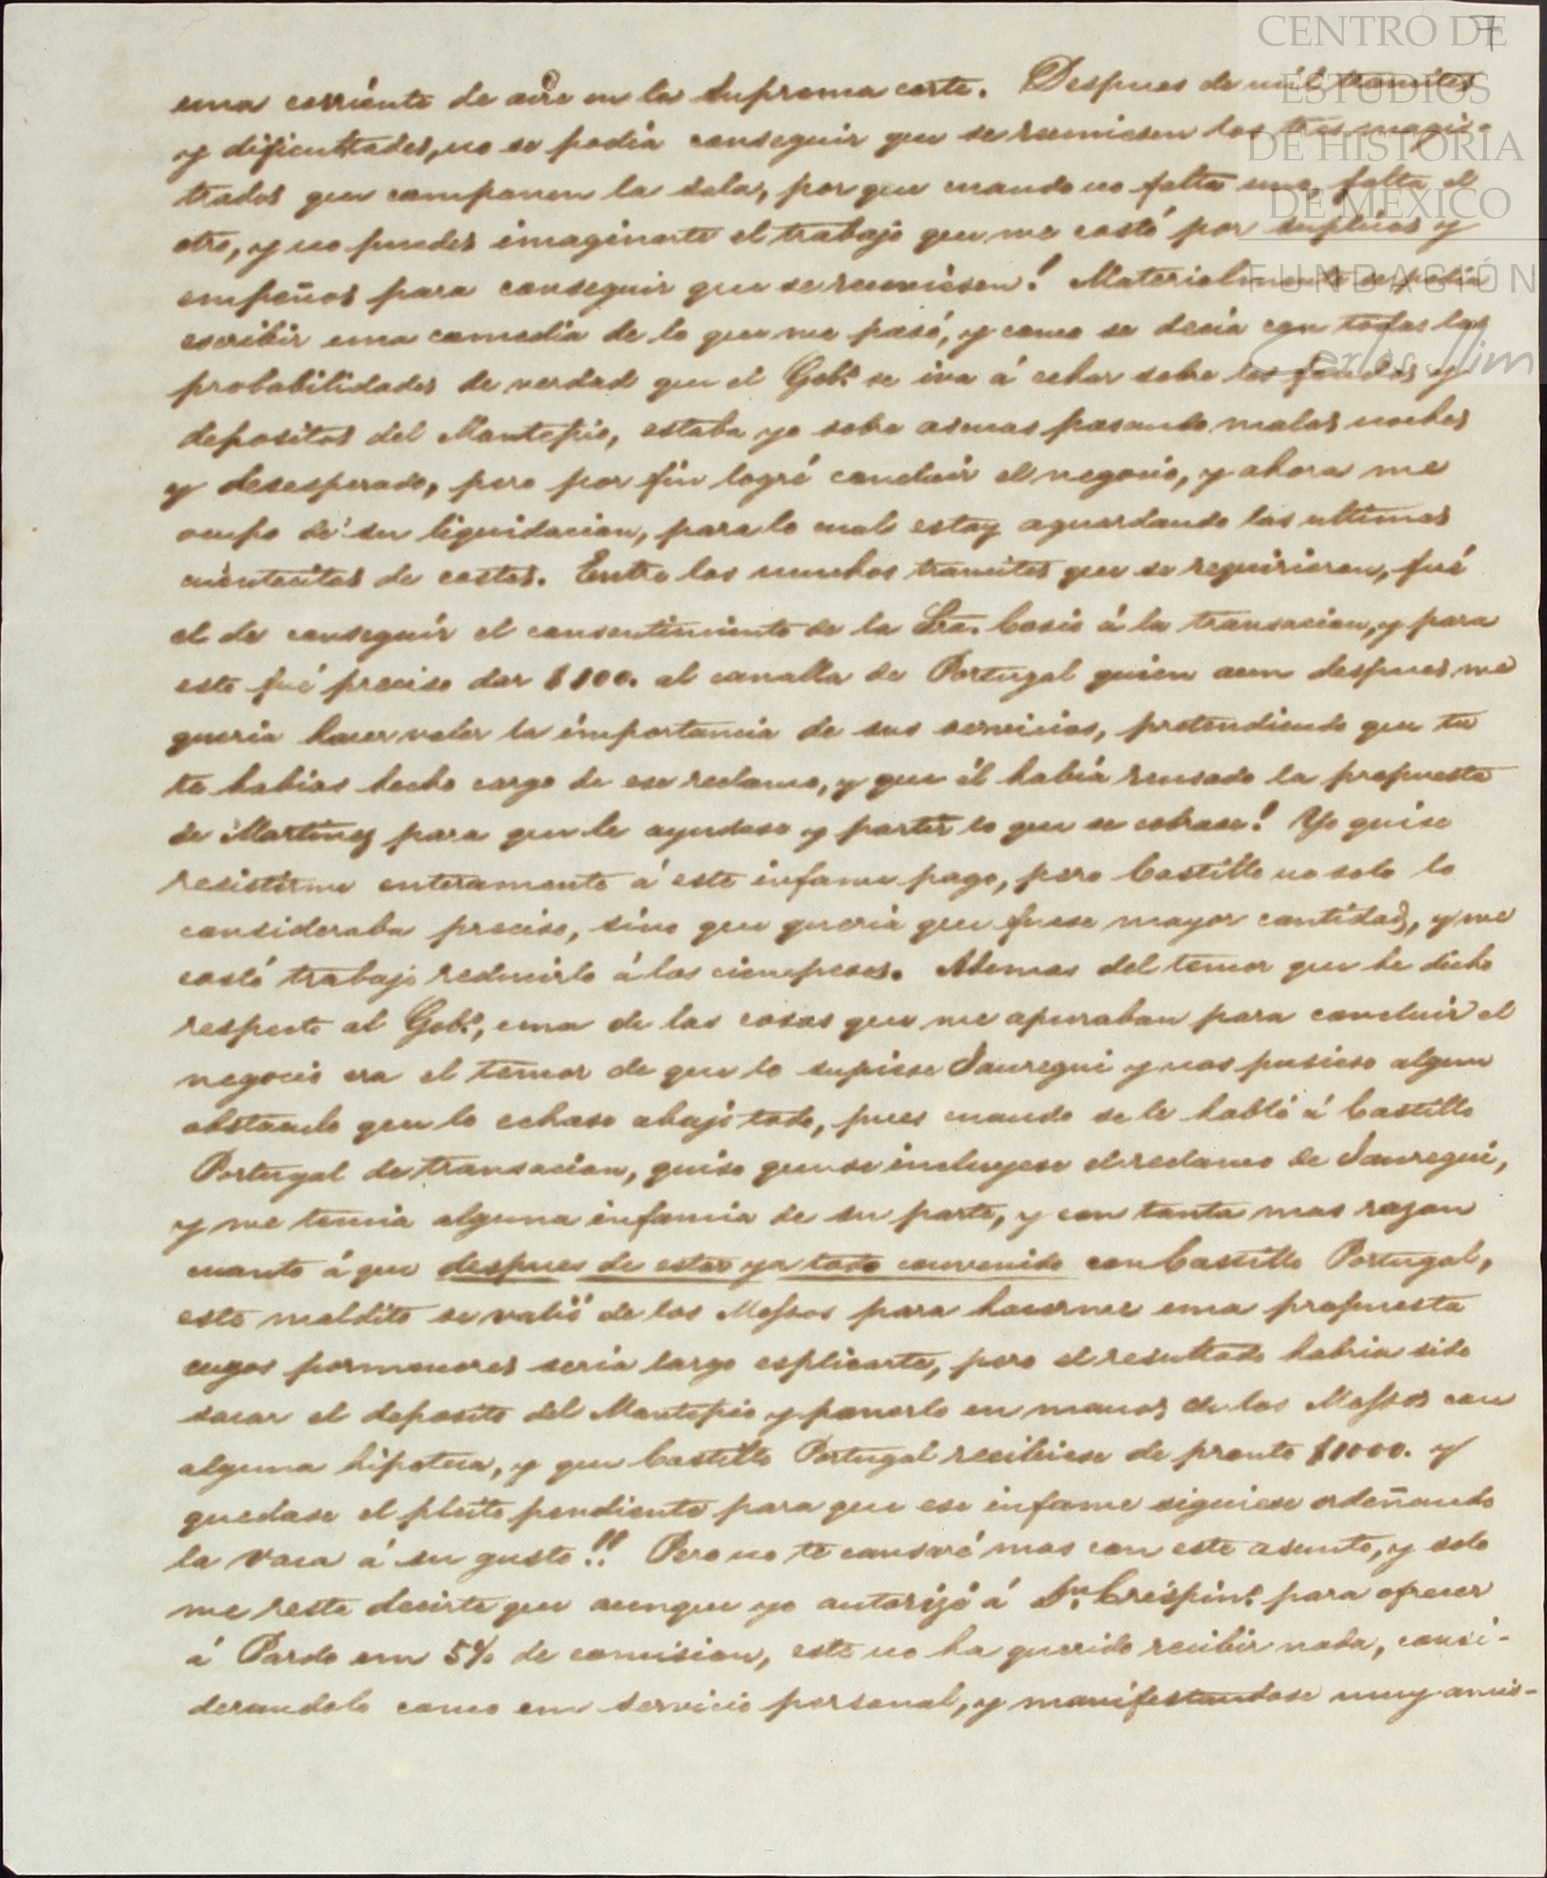 7
CENTRO DE
ESTUDIOS
DE HISTORIA
DE MÉXICO
FUNDACIÓN
Carlos Slim
una corriente de aire en la Suprema corte. Despues de mil tramites
y dificultades, no se podia conseguir que se reuniesen los tres magis-
trados que componen la sala, por que cuando no falta uno, falta el
otro, y no puedes imaginarte el trabajo que me costó por suplicas y
empeños para conseguir que se reuniesen! Materialmente se podia
escribir una comedia de lo que me pasó, y como se decia con todas las
probabilidades de verdad que el Gobº se iva á echar sobre los fondos y
depositos del Montepio, estaba yo sobre ascuas pasando malas noches
y desesperado, pero por fin logré concluir el negocio, y ahora me
ocupo de su liquidacion, para lo cual estoy aguardando las ultimas
cuentecitas de costas. Entre los muchos tramites que se requirieron, fué
el de conseguir el consentimiento de la Sra. Cosio á la transacion, y para
esto fué preciso dar $100. al canalla de Portugal quien aun despues me
queria hacer valer la importancia de sus servicios, pretendiendo que tu
te habias hecho cargo de ese reclamo, y que él habia reusado la propuesta
de Martinez para que le ayudase y partir lo que se cobrase! Yo quise
resistirme enteramente á este infame pago, pero Castillo no solo lo
consideraba preciso, sino que queria que fuese mayor cantidad, y me
costó trabajo reducirlo á los cien pesos. Ademas del temor que he dicho
respecto al Gobº, una de las cosas que me apuraban para concluir el
negocio era el temor de que lo supiese Jauregui y nos pusiese algun
obstaculo que lo echase abajo todo, pues cuando se le habló á Castillo
Portugal de transacion, quiso que se incluyese el reclamo de Jauregui,
y me temia alguna infamia de su parte, y con tanta mas razon
cuanto á que despues de estar ya todo convenido con Castillo Portugal,
este maldito se valió de los Mossos para hacerme una propuesta
cuyos pormenores seria largo esplicarte, pero el resultado habria sido
sacar el deposito del Montepio y ponerlo en manos de los Mossos con
alguna hipoteca, y que Castillo Portugal recibiese de pronto $1000. y
quedase el pleito pendiente para que ese infame siguiese ordeñando
la vaca á su gusto!! Pero no te cansaré mas con este asunto, y solo
me resta decirte que aunque yo autorizé á Dn. Crispinº para ofrecer
á Pardo un 5% de comision, este no ha querido recibir nada, consi-
derandolo como un servicio personal, y manifestandose muy amis-